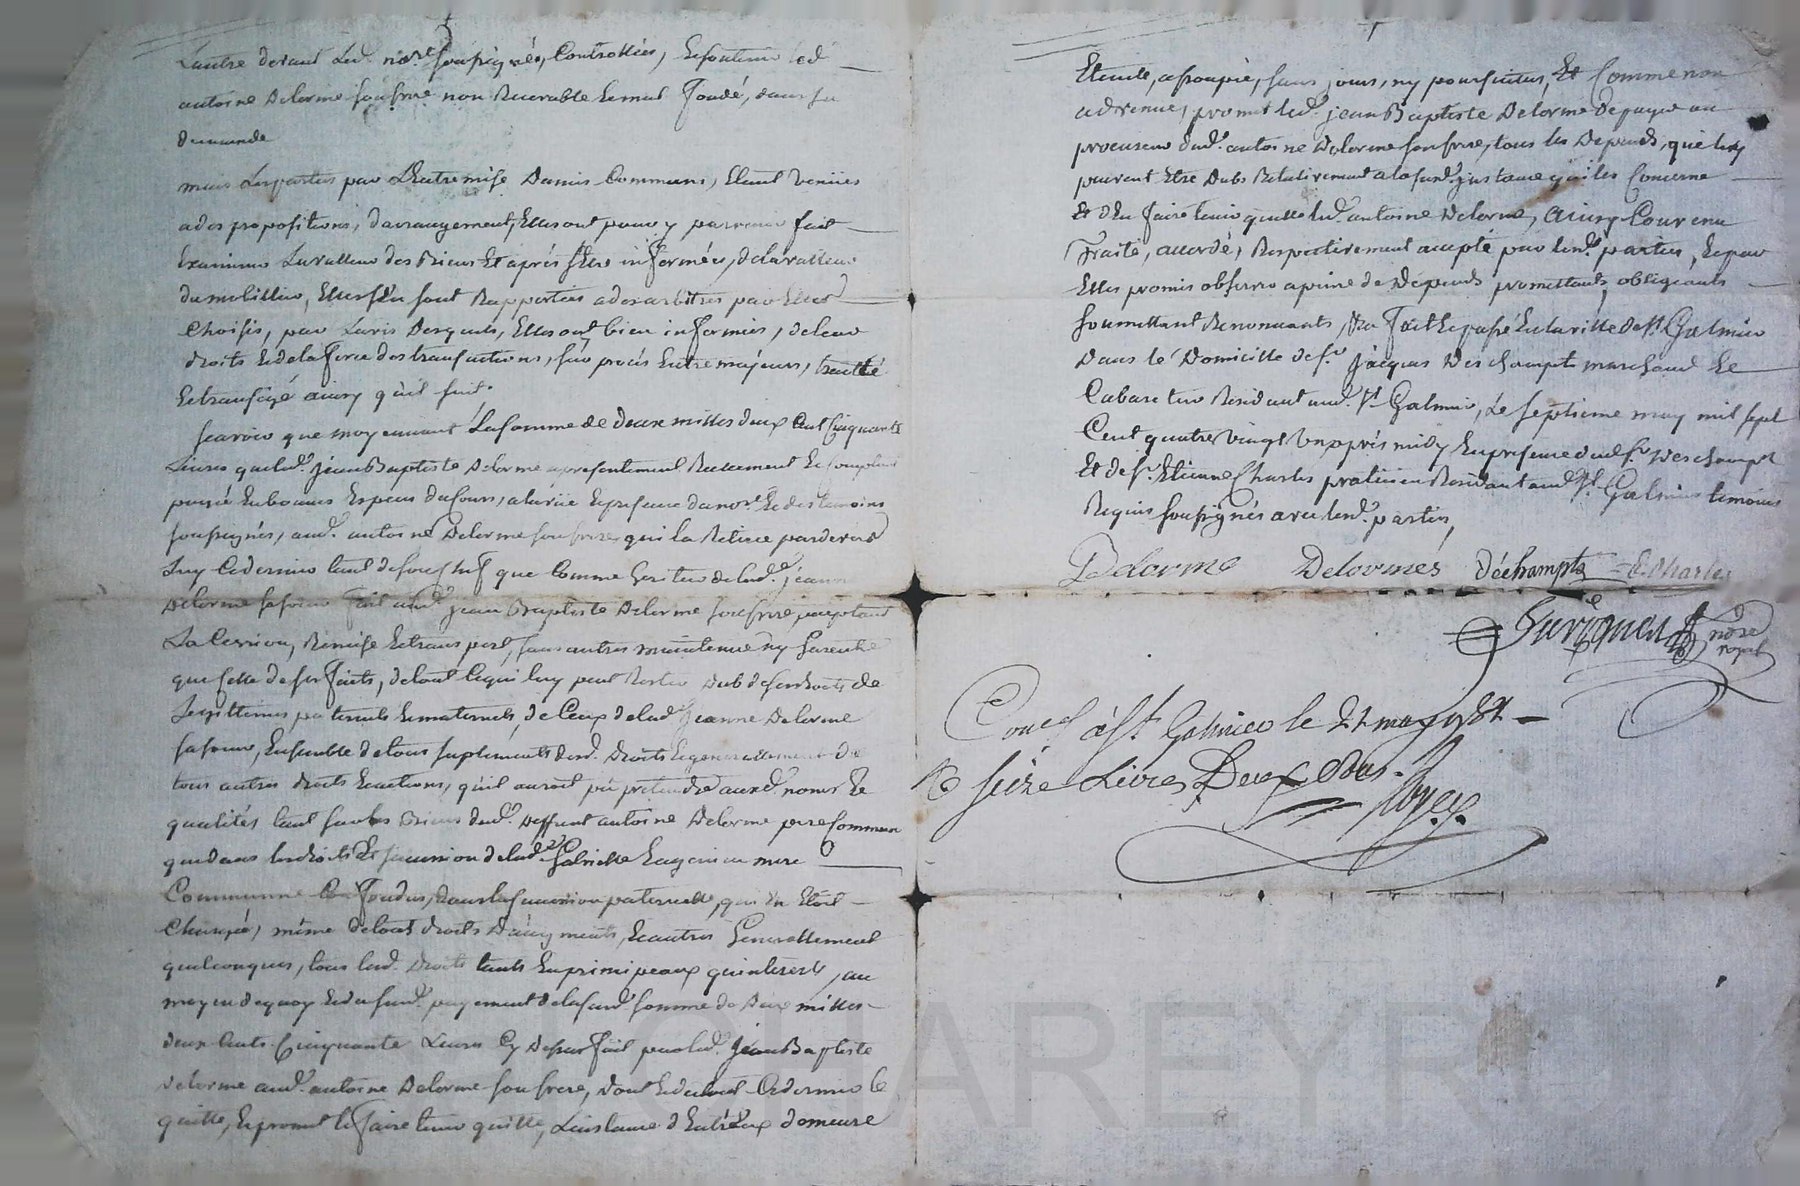 L'autre devant Led. no.re soussigné, Controllées, Et soutenu led.
antoine Delorme son frere non Recevable Et mal fondé, dans sa
demande
mais Les parties par L'Entremise D'amis Communs, Etant venües
a des propositions, d'arrangement, Elles ont pour y parvenir fait
Examiner La valleur des Biens Et aprés s'Etre informées, de la valleur
du mobillier, Elles s'En sont Rapportées a des arbitres par Elles
Choisis, par L'avis Desquels, Elles ont, bien informées, de leur
droits Et de la force des transactions, sur procés Entre majeurs, traitté
Et transigé ainsy qu'il suit.
Scavoir que moyennant La somme de deux milles deux Cent Cinquante
Livres que led. jean Baptiste Delorme a presentement Reellement Et
payé En bonnes Especes du Cours, a la vüe Et presence du no.re Et des temoins
soussignés, aud. antoine Delorme son frere qui la Retiree pardevers
Luy Ce dernier tant de son chef que Comme heritier de lad. jeanne
Delorme sa soeur fait aud. jean Baptiste Delorme son frere, acceptant
La Cession, Remise Et transport, sans autres maintenue ny Garentie
que Celle de ses faits, de tout Ce qui luy peut Rester Dub de ses droits de
Legittimes paternels Et maternels, de Ceux de lad. Jeanne Delorme
sa soeur, Ensemble de tous suplements desd. Droits Et generallement de
tous autres droits Et actions, qu'il auroit pü pretendre auxd. noms Et
qualités tant sur les Biens dud. Deffunt antoine Delorme pere Commun
que dans les droits Et succession de lad. Gabrielle mere
Commune Confondus, dans la succession paternelle, qui En Etoit
Chargée, même de tous droits D'augments, Et autres Generallement
quelconques, tous lesd. Droits tants En principeaux qu'interets, au
moyen de quoy Et du susd. payement de la susd. somme de Deux milles
deux Cents Cinquante Livres Cy Dessus fait par led. Jean Baptiste
delorme aud. antoine Delorme son frere, dont Et du tout Ce dernier le
quitte, Et promet le faire tenir quitte, L'instance d'Entr'Eux demeure
Eteinte, assoupie, sans jours, ny poursuites, Et Comme non
advenue, promet led. jean Baptiste Delorme De payer au
procureur dud. antoine Delorme son frere, tous les Depends, qui luy
peuvent Etre Dubs Relativement a la susd. jnstance qui les Concerne
Et d'En faire tenir quitte led. antoine Delorme, Ainsy Convenu
Traité, accordé, Respectivement accepté par lesd. parties, Et par
Elles promis observer a peine de Dépends promettants, obligeants
soumettant Renonceants, Fait Et passé En la ville de St. Galmier
Dans le Domicille de Sr. Jacques Deschampts marchand Et
Cabaretier Residant aud. St. Galmier, Le septieme may mil sept
Cent quatre vingt Un aprés midy En presence dud. Sr. Deschampt
Et de Sr. Etienne Charles praticien Residant aud. St. Galmier temoins
Requis soussignés avec lesd. parties,
Delorme Delormes déchampts E. Charles
no.re
royal
Con.lé à St. Galmier le 21 may 1781
R. seize Livres Deux sous.
CHAREYRO